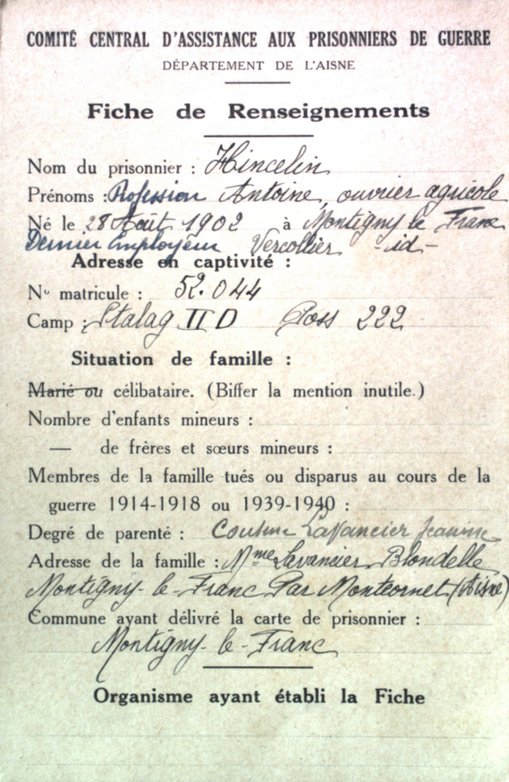 COMITÉ CENTRAL D'ASSISTANCE AUX PRISONNIERS DE GUERRE
DÉPARTEMENT DE L'AISNE
Fiche de Renseignements
Nom du prisonnier : Hincelin
Prénoms : Profession Antoine, ouvrier agricole
Né le 28 Août 1902 à Montigny le Franc
Dernier Employeur Vercollier -id-
Adresse en captivité :
No matricule : 52.044
Camp : Stalag II D 222
Situation de famille :
Marié ou célibataire. (Biffer la mention inutile.)
Nombre d'enfants mineurs :
— de frères et sœurs mineurs :
Membres de la famille tués ou disparus au cours de la
guerre 1914-1918 ou 1939-1940 :
Degré de parenté : Cousine Lavancier Jeanne
Adresse de la famille : Mme Lavancier Blondelle
Montigny-le-Franc Par Montcornet (Aisne)
Commune ayant délivré la carte de prisonnier :
Montigny-le-Franc
Organisme ayant établi la Fiche